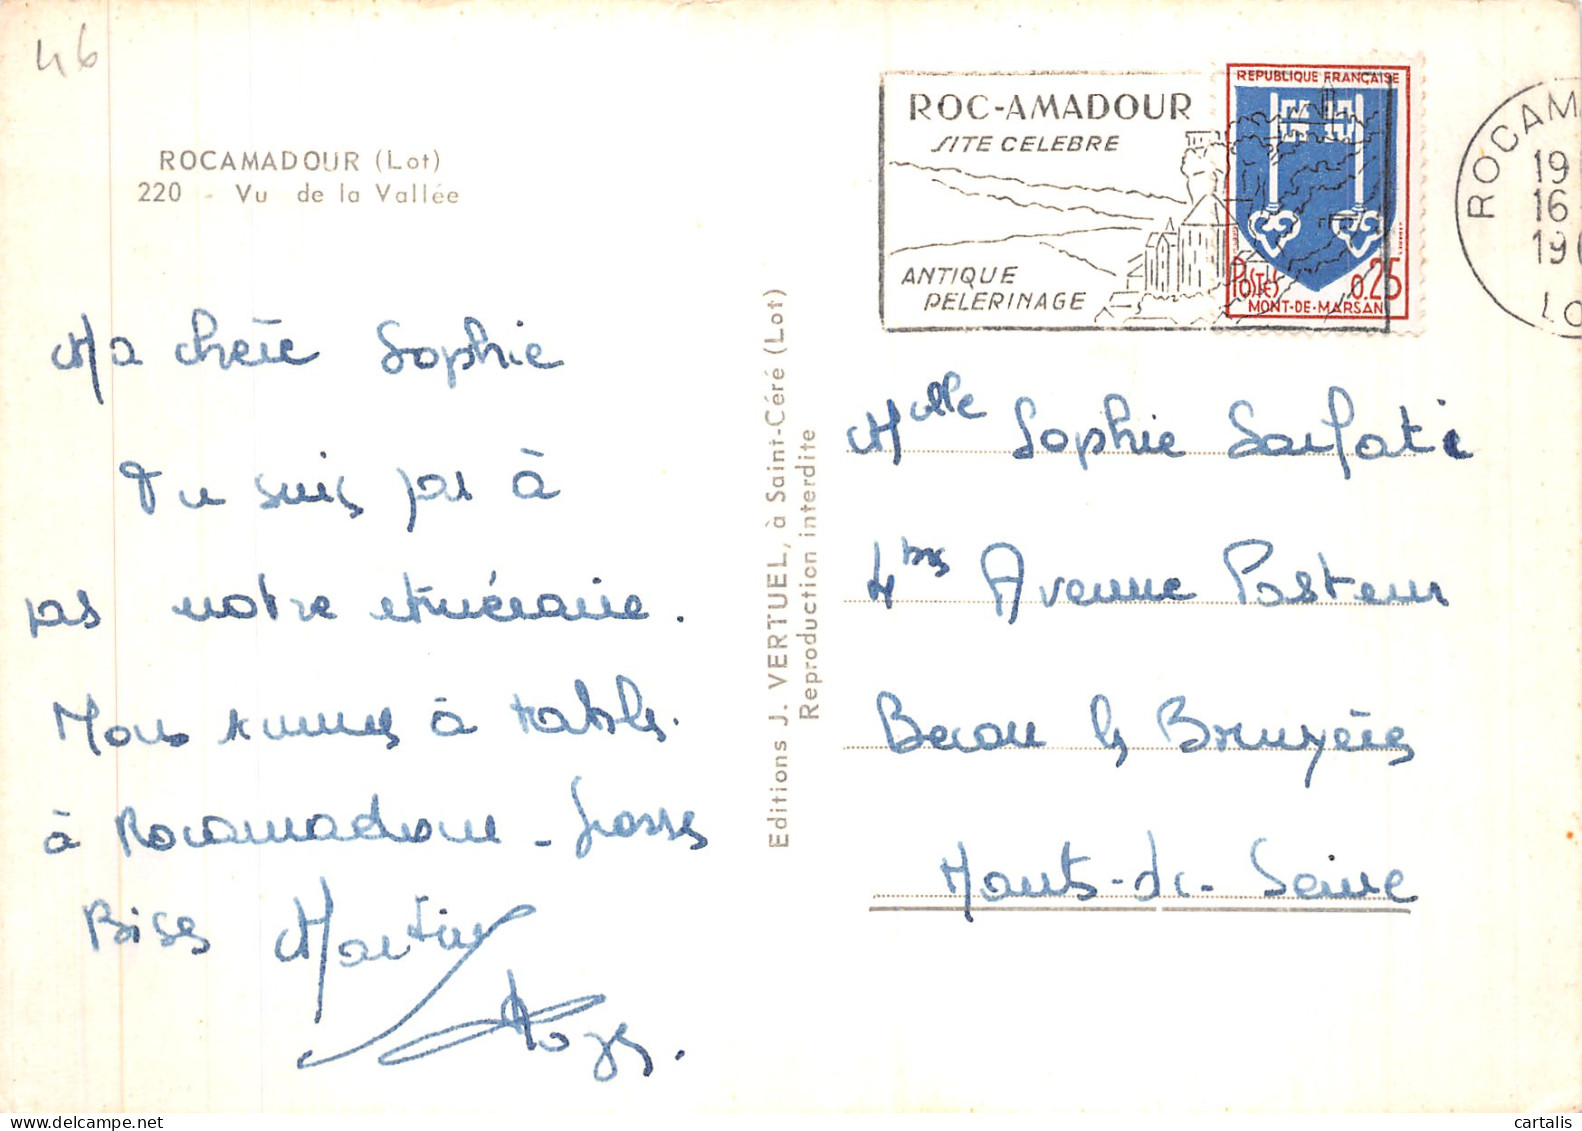 46
ROCAMADOUR (Lot)
220 - Vu de la Vallée
Ma chère Sophie
Tu suis pas à
pas notre itinéraire.
Nous sommes à table
à Rocamadour - Grosses
Bises Martine
Editions J. VERTUEL, à Saint-Céré (Lot)
Reproduction interdite
ROC-AMADOUR
SITE CELEBRE
ANTIQUE
PELERINAGE
REPUBLIQUE FRANÇAISE
POSTES 0.25
MONT-DE-MARSAN
ROCAM
19
16
19
LO
Melle Sophie Sarfati
4bis Avenue Pasteur
Becon les Bruyères
Hauts-de-Seine
cartalis